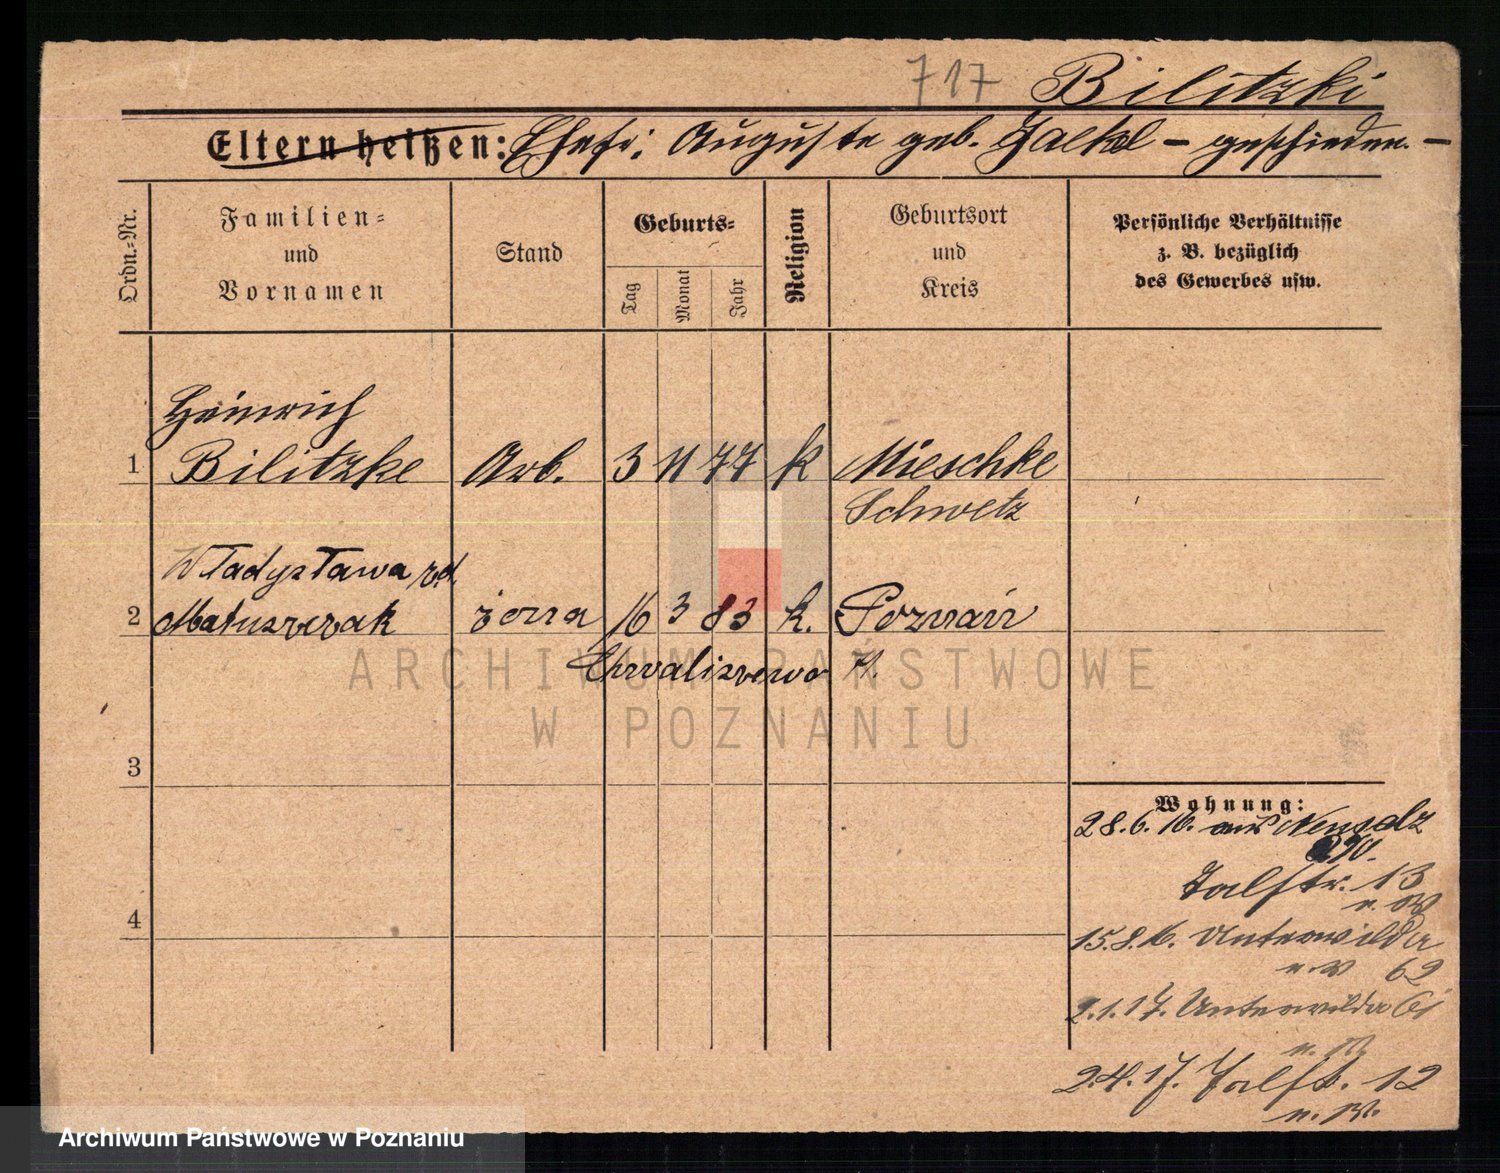 717 Bilitzki
Eltern heißen: Ehefr: Auguste geb. - geschieden. -
Ordn.=Nr.
Familien=
und
Vornamen
Stand
Geburts=
Tag
Monat
Jahr
Religion
Geburtsort
und
Kreis
Persönliche Verhältnisse
z. B. bezüglich
des Gewerbes usw.
Heinrich
1 Bilitzke Arb. 3 11 77 k Mieschke
Schwetz
Władysława zd.
2 Matuszczak żona 16 3 83 k. Poznań
Chwaliszewo
3
4
Wohnung:
28.6.16. aus Neusalz
Talstr. 13
15.8.16. Unterwilda
62
2.1.17. Unterwilda
2.4.17. Talst. 12
ARCHIWUM PAŃSTWOWE
W POZNANIU
Archiwum Państwowe w Poznaniu